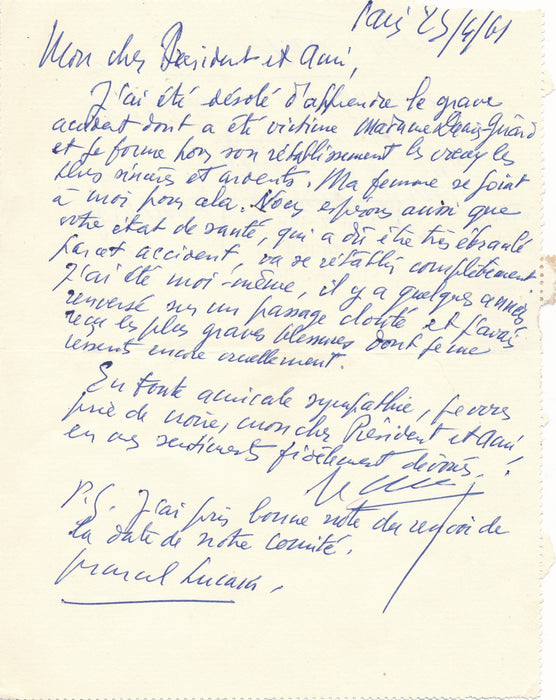 Paris 25/4/61
Mon cher Président et Ami,
J'ai été désolé d'apprendre le grave
accident dont a été victime Madame
et je forme pour son rétablissement les vœux les
plus sincères et ardents. Ma femme se joint
à moi pour cela. Nous espérons aussi que
votre état de santé, qui a dû être très ébranlé
par cet accident, va se rétablir complètement
J'ai été moi-même, il y a quelques années
renversé sur un passage clouté et j'avais
reçu les plus graves blessures dont je me
ressents encore cruellement.
En toute amicale sympathie, je vous
prie de croire, mon cher Président et Ami
en mes sentiments fidèlement dévoués.
P.S. J'ai pris bonne note du renvoi de
la date de notre comité.
Marcel